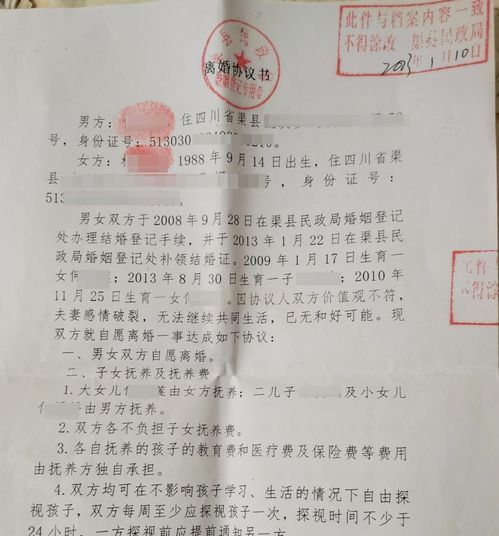 此件与档案内容一致
不得涂改 渠县民政局
年1月10日
离婚协议书
婚姻登记专用章
男方：住四川省渠县
号，身份证号：513030
女方：1988年9月14日出生，住四川省渠
县号，身份证号：
513
男女双方于2008年9月28日在渠县民政局婚姻登记
处办理结婚登记手续，并于2013年1月22日在渠县民
政局婚姻登记处补领结婚证。2009年1月17日生育一
女；2013年8月30日生育一子；2010年
11月25日生育一女。因协议人双方价值观不符，
夫妻感情破裂，无法继续共同生活，已无和好可能。现
双方就自愿离婚一事达成如下协议：
一、男女双方自愿离婚。
二、子女抚养及抚养费
1.大女儿莲由女方抚养；二儿子及小女儿
由男方抚养。
2.双方各不负担子女抚养费。
3.各自抚养的孩子的教育费和医疗费及保险费等费用
由抚养方独自承担。
4.双方均可在不影响孩子学习、生活的情况下自由探
视孩子，双方每周至少应探视孩子一次，探视时间不少于
24小时，一方探视前应提前通知另一方
不得涂